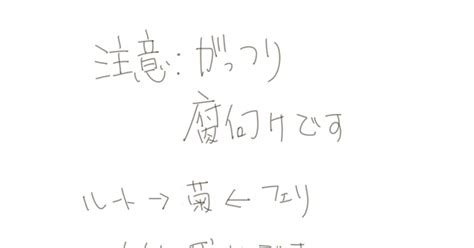 注意:がっつり
腐向けです
ルート→菊←フェリ